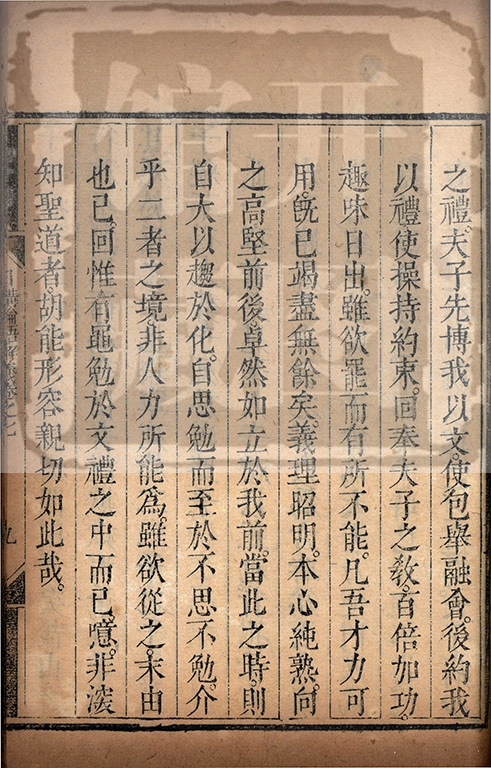 之禮。夫子先博我以文。使包舉融會。後約我
以禮。使操持約束。回奉夫子之教。百倍加功。
趣味日出。雖欲罷而有所不能。凡吾才力可
用。旣已竭盡無餘矣。義理昭明。本心純熟。向
之高堅前後。卓然如立於我前。當此之時。則
自大以趨於化。自思勉而至於不思不勉。介
乎二者之境。非人力所能爲。雖欲從之。末由
也已。回惟有黽勉於文禮之中而已。噫。非深
知聖道者。胡能形容親切如此哉。
九